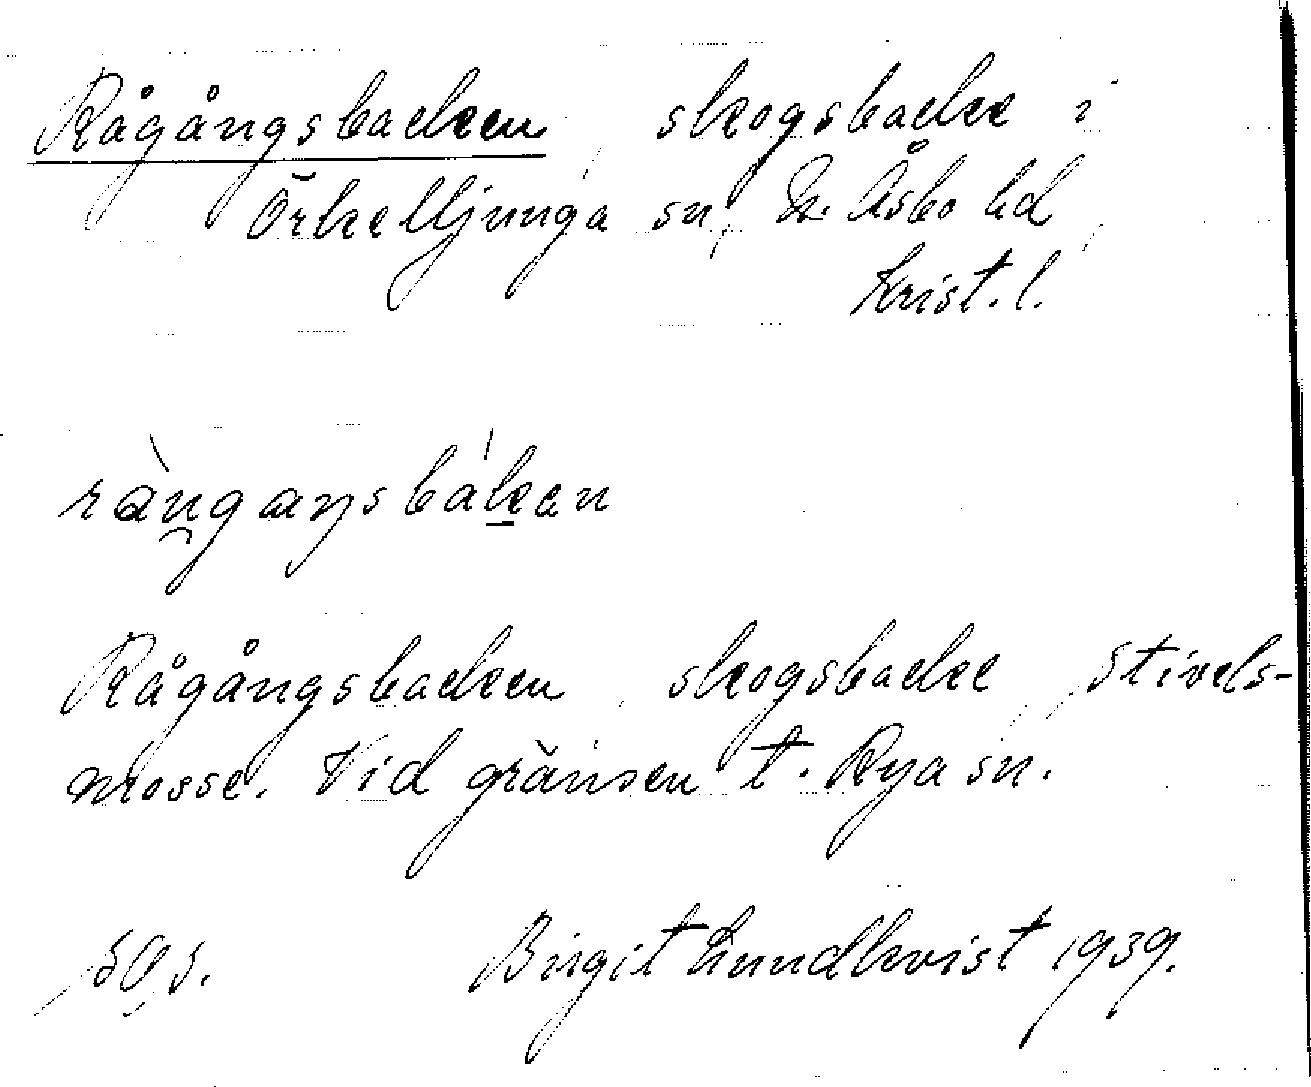 Rågångsbacken, skogsbacke i
Örkelljunga sn, N. Åsbo hd,
Krist. l.
Rågångsbacken, skogsbacke, Stivels-
mosse. Vid gränsen t. Rya sn.
Birgit Lundkvist 1939.